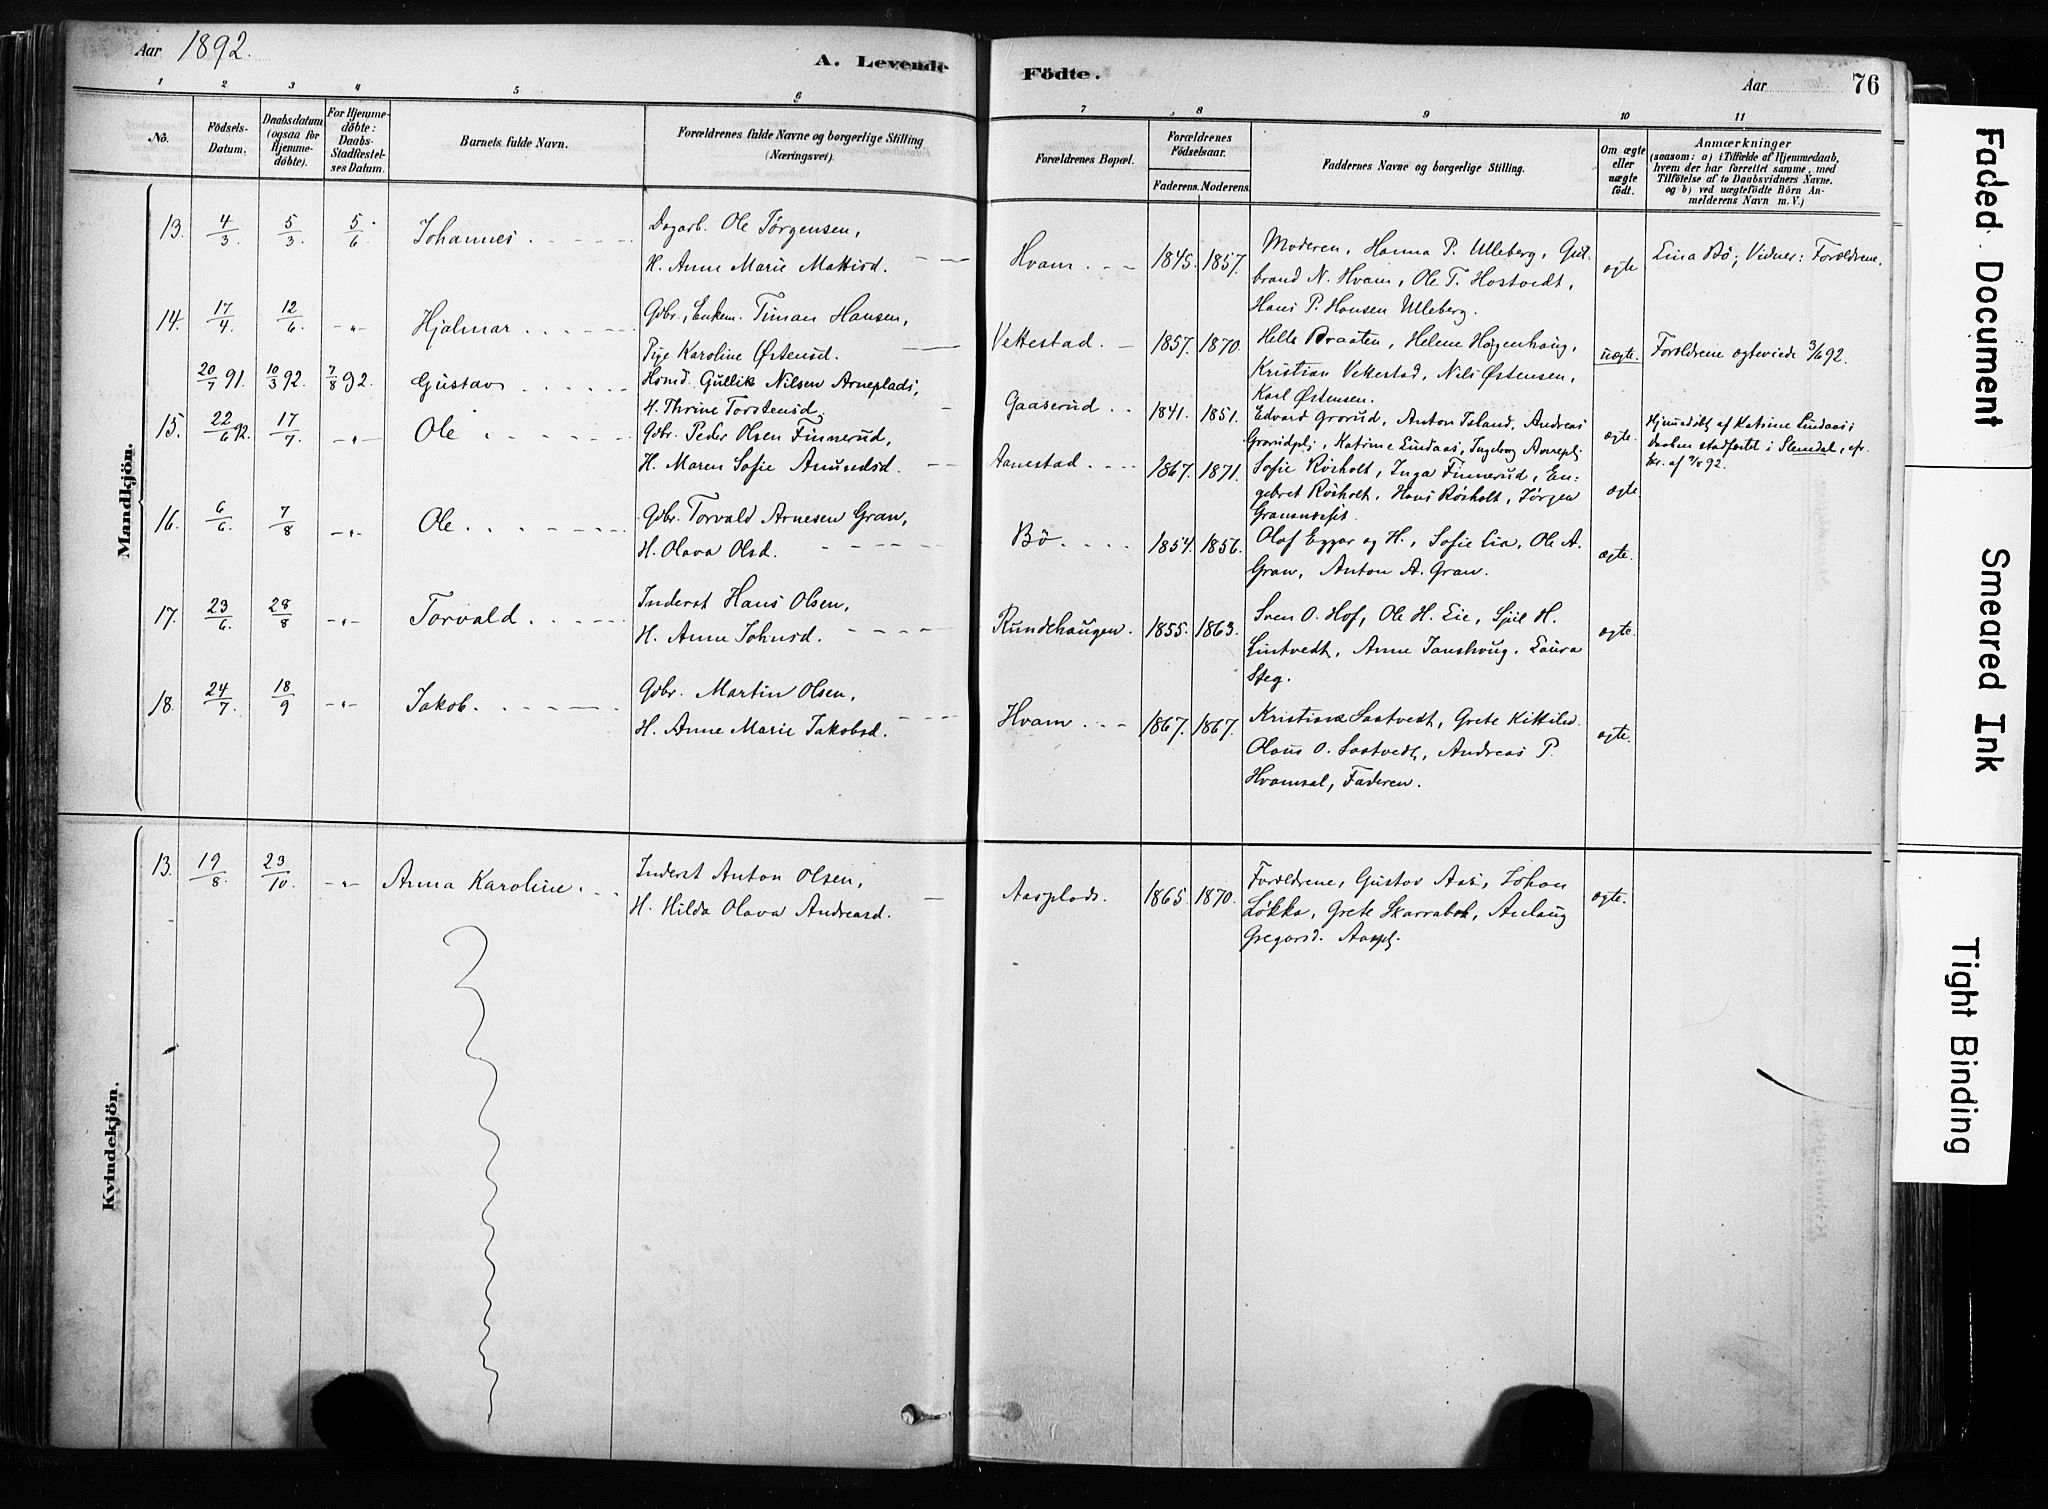 Aar 1892.
A. Levende Födte.
Aar
76
1 2 3 4 5 6 7 8 9 10 11
No.
Födsels-Datum.
Daabsdatum (ogsaa for Hjemme-döbte).
For Hjemme-döbte: Daabs-Stadfæstel-ses Datum.
Barnets fulde Navn.
Forældrenes fulde Navne og borgerlige Stilling (Næringsvei).
Forældrenes Bopæl.
Forældrenes Födselsaar.
Faderens. Moderens.
Faddernes Navne og borgerlige Stilling.
Om ægte eller uægte födt.
Anmærkninger
(saasom: a) i Tilfælde af Hjemmedaab,
hvem der har forrettet samme, med
Tilföielse af to Daabsvidners Navne,
og b) ved uægtefödte Börn An-
melderens Navn m. V.)
Mandkjön.
13. 4/3. 5/3. 5/6. Johannes
Dagarb. Ole Jørgensen,
H. Anne Marie Mattisd.
Hvam. 1845. 1857.
Moderen, Hanna P. Ulleberg, Gul-
brand N. Hvam, Ole T. Hostvedt,
Hans P. Hansen Ulleberg.
ægte
Lina Bö; Vidner: Forældrene.
14. 17/4. 12/6. -"- Hjalmar
Gdbr., Enkem. Timan Hansen,
Pige Karoline Østensd.
Vettestad. 1857. 1870.
Helle Braaten, Helene Høgenhaug,
Kristian Vettestad, Nils Østensen,
Karl Østensen.
uægte.
Forældrene ægteviede 3/6 92.
20/7 91. 10/3 92. 7/8 92. Gustav
Husmd. Gullik Nilsen Arneplads,
H. Thrine Torstensd.
Gaaserud. 1841. 1851.
Edvard Grorud, Anton Island, Andreas
Grorudplj, Katrine Lindaas, Ingeborg Arneplj
ægte.
Hjemmedöbt af Katrine Lindaas;
Daaben stadfæstet i Slemdal, efr.
br. af 9/8 92.
15. 22/6 92. 17/7. -"- Ole
Gdbr. Peder Olsen Finnerud,
H. Maren Sofie Amundsd.
Aanestad. 1867. 1871.
Sofie Røsholt, Inga Finnerud, En-
gebret Røsholt, Hans Røsholt, Jørgen
ægte.
16. 6/6. 7/8 -"- Ole.
Gdbr. Torvald Arnesen Gran,
H. Olava Olsd.
Bö. 1854. 1856.
Olaf Eggar og H., Sofie Lia, Ole A.
Gran, Anton A. Gran.
ægte.
17. 23/6. 28/8 -"- Torvald
Inderst Hans Olsen,
H. Anne Johnsd.
Rundehaugen. 1855. 1863.
Sven O. Hof, Ole H. Lie, H.
Lintvedt, Anne Janshaug, Laura
Steg.
ægte.
18. 24/7. 18/9 -"- Jakob.
Gdbr. Martin Olsen,
H. Anne Marie Jakobsd.
Hvam 1867. 1867.
Kristiane Saatvedt, Grete Kittilsd.
Olaus O. Saatvedt, Andreas P.
Hvamsal, Faderen.
ægte.
Kvindekjön.
13. 19/8. 23/10. -"- Anna Karoline.
Inderst Anton Olsen,
H. Hilda Olava Andreasd.
Aasplads. 1865. 1870.
Forældrene, Gustav Aas, Johan
Løkka, Grete Skarrabok, Anlaug
Gregarsd. Aaspl.
ægte.
Faded Document
Smeared Ink
Tight Binding